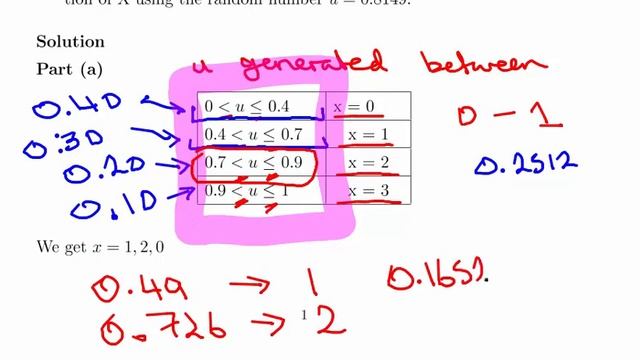 tion of X using the random number u = 0.8149.
Solution
Part (a)
u generated between
0 - 1
0.40
0.30
0.20
0.10
0 < u ≤ 0.4 x = 0
0.4 < u ≤ 0.7 x = 1
0.7 < u ≤ 0.9 x = 2
0.9 < u ≤ 1 x = 3
0.2512
We get x = 1, 2, 0
0.49 → 1
0.1651
0.726 → 2
1